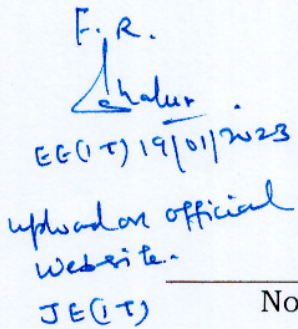 F. R.
EE(IT) 19/01/2023
upload on official
website.
JE(IT)
No